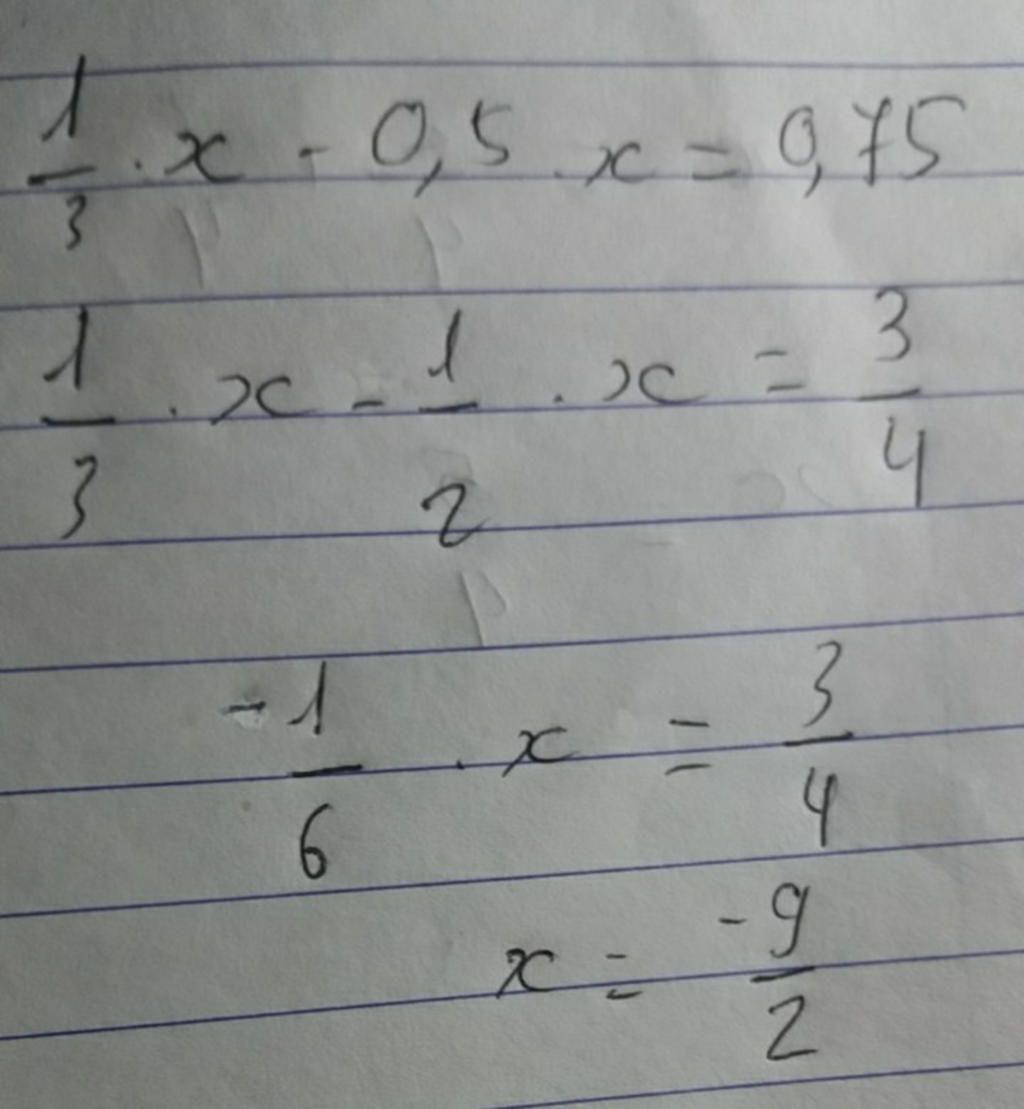 1/3 . x - 0,5 . x = 0,75
1/3 . x - 1/2 . x = 3/4
-1/6 . x = 3/4
x = -9/2